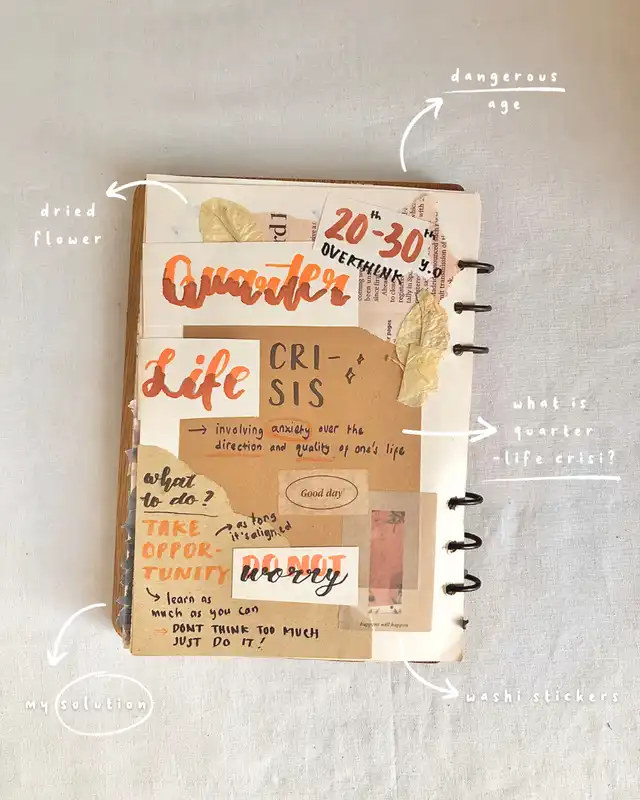 dangerous
age
dried
flower
20th-30th
y.o
OVERTHINK
Quarter
Life
CRI-
SIS
→ involving anxiety over the
direction and quality of one's life
what is
quarter
-life crisi?
Good day
what
to do?
TAKE
OPPOR-
TUNITY
→ as long
it's aligned
DO NOT
worry
↳ learn as
much as you can
→ DONT THINK TOO MUCH
JUST DO IT!
happens will happen
my solution
washi stickers